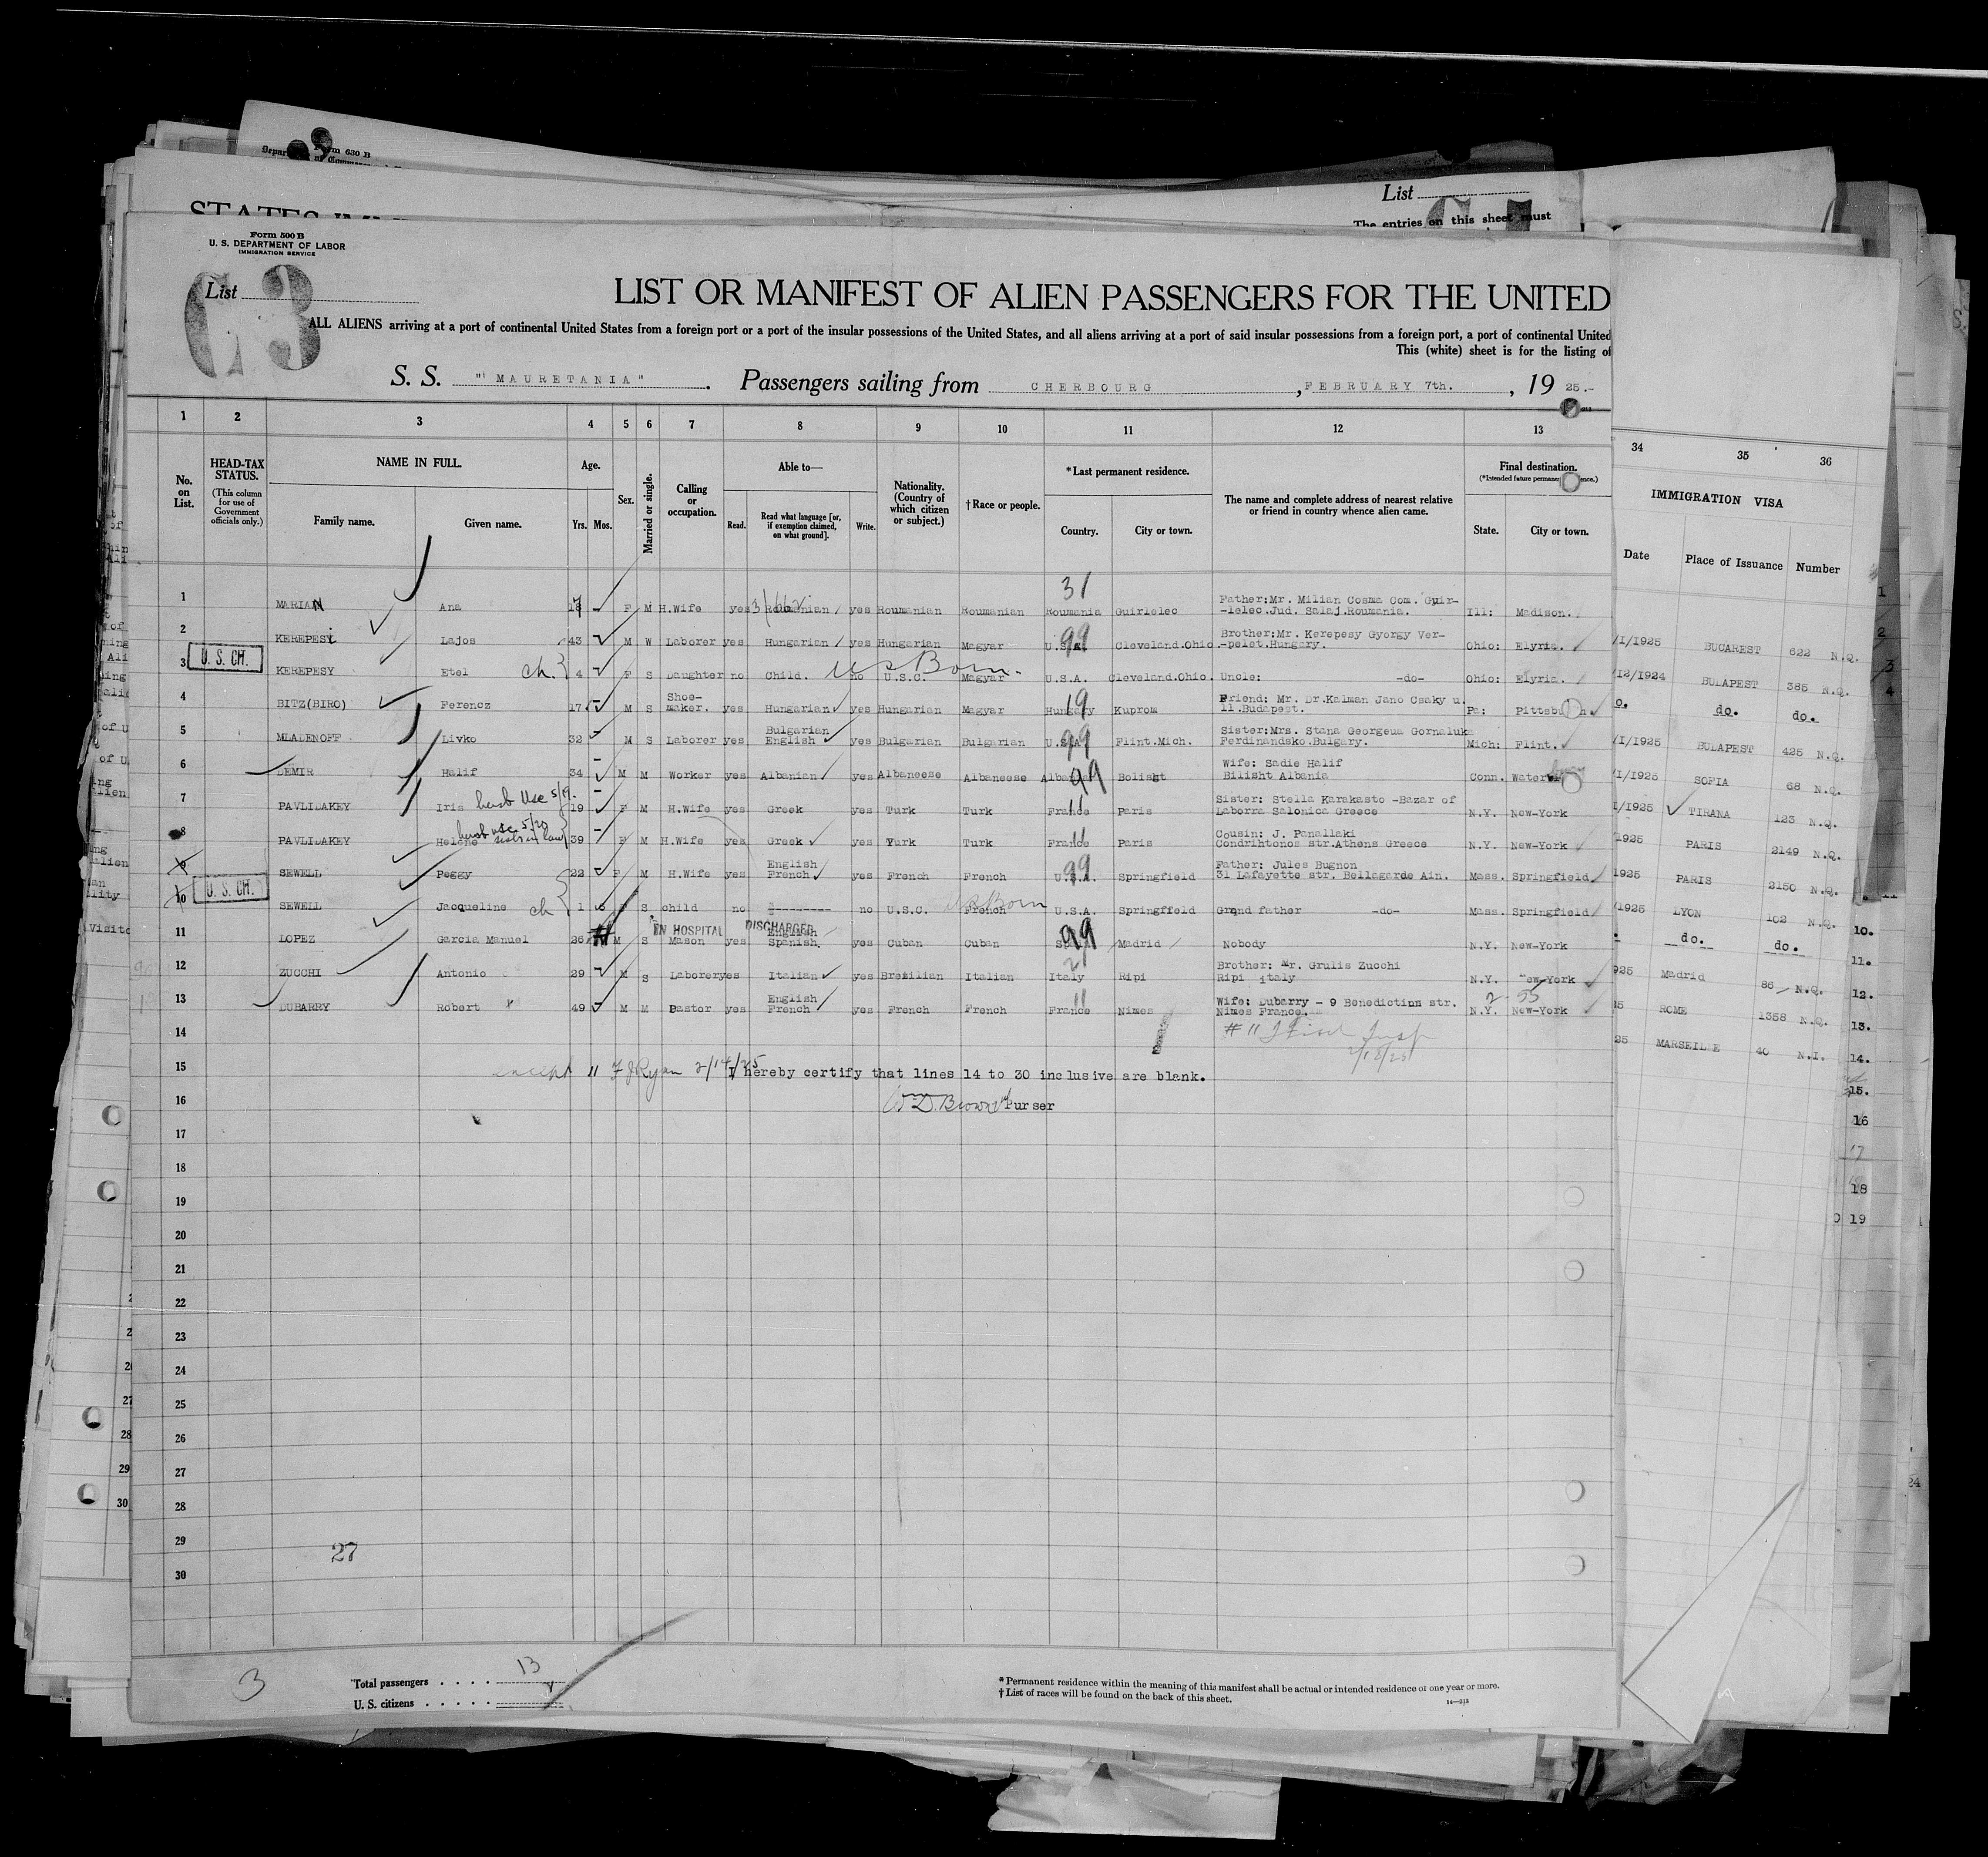 Form 630 B
List
The entries on this sheet must
Form 500 B
U. S. DEPARTMENT OF LABOR
IMMIGRATION SERVICE
List
63
LIST OR MANIFEST OF ALIEN PASSENGERS FOR THE UNITED
ALL ALIENS arriving at a port of continental United States from a foreign port or a port of the insular possessions of the United States, and all aliens arriving at a port of said insular possessions from a foreign port, a port of continental United
This (white) sheet is for the listing of
S. S. "MAURETANIA". Passengers sailing from CHERBOURG, FEBRUARY 7th., 1925.-
1 2 3 4 5 6 7 8 9 10 11 12 13 34 35 36
No. on List. HEAD-TAX STATUS. (This column for use of Government officials only.) NAME IN FULL. Family name. Given name. Age. Yrs. Mos. Sex. Married or single. Calling or occupation. Able to— Read. Read what language [or, if exemption claimed, on what ground]. Write. Nationality. (Country of which citizen or subject.) †Race or people. *Last permanent residence. Country. City or town. The name and complete address of nearest relative or friend in country whence alien came. Final destination. State. City or town.
IMMIGRATION VISA Date Place of Issuance Number
31
1 MARIAN Ana F M H.Wife yes Roumanian yes Roumanian Roumanian Roumania Guirlelec Father:Mr. Milian Cosma Com. Guir- -lelec.Jud. Salaj.Roumania. Ill: Madison.
2 KEREPESY Lajos 43 M W Laborer yes Hungarian yes Hungarian Magyar U.S.A. 99 Cleveland.Ohio Brother:Mr. Kerepesy Gyorgy Ver- -pelet.Hungary. Ohio: Elyria. /I/1925 BUCAREST 622 N.Q.
3 U. S. CH. KEREPESY Etel ch. 4 F S Daughter no Child. US Born. no U.S.C. Magyar U.S.A. Cleveland.Ohio. Uncle: -do- Ohio: Elyria. /12/1924 BUDAPEST 385 N.Q.
4 BITZ(BIRO) Ferencz 17 M S Shoe- maker. yes Hungarian yes Hungarian Magyar Hungary 19 Kuprom Friend: Mr. Dr.Kalman Jano Csaky u. 11.Budapest. Pa: Pittsburgh. o. do. do.
5 MLADENOFF Livko 32 M S Laborer yes Bulgarian English yes Bulgarian Bulgarian U.S.A. 99 Flint.Mich. Sister:Mrs. Stana Georgeua Gornaluka Ferdinandsko.Bulgary. Mich: Flint. /I/1925 BUDAPEST 425 N.Q.
6 DEMIR Halif 34 M M Worker yes Albanian yes Albaneese Albaneese Albania 99 Wife: Sadie Halif Bilisht Albania Conn. /I/1925 SOFIA 68 N.Q.
7 PAVLIDAKEY Iris 19 F M H.Wife yes Greek yes Turk Turk France 11 Paris Sister: Stella Karakasto -Bazar of Laborra Salonica Greece N.Y. New-York I/1925 TIRANA 123 N.Q.
8 PAVLIDAKEY Helene 39 F M H.Wife yes Greek yes Turk Turk France 11 Paris Cousin: J. Panallaki Condrihtonos str.Athens Greece N.Y. New-York 1925 PARIS 2149 N.Q.
9 SEWELL Peggy 22 F M H.Wife yes English French yes French French U.S.A. 99 Springfield Father: Jules Bugnon 31 Lafayette str. Bellagarde Ain. Mass. Springfield 1925 PARIS 2150 N.Q.
10 U. S. CH. SEWELL Jacqueline ch 1 F S child no -------- no U.S.C. US Born French U.S.A. Springffeld Grand father -do- Mass. Springfield /1925 LYON 102 N.Q.
11 LOPEZ Garcia Manuel 26 M S IN HOSPITAL Mason yes DISCHARGED English Spanish yes Cuban Cuban 99 Madrid Nobody N.Y. New-York do. do.
12 ZUCCHI Antonio 29 M S Laborer yes Italian yes Brezilian Italian Italy Ripi Brother: Mr. Grulis Zucchi Ripi italy N.Y. New-York 925 Madrid 86 N.Q.
13 DUBARRY Robert 49 M M Pastor yes English French yes French French France 11 Nimes Wife: Dubarry - 9 Benedictinn str. Nimes France. N.Y. New-York ROME 1358 N.Q.
14 25 MARSEILLE 40 N.I.
15 except 11 F J Ryan 2/14/25 I hereby certify that lines 14 to 30 inclusive are blank.
16 Wm D. Brown Purser
17
18
19
20
21
22
23
24
25
26
27
28
29
27
30
3
Total passengers . . . . 13
U. S. citizens . . . . .
* Permanent residence within the meaning of this manifest shall be actual or intended residence of one year or more.
† List of races will be found on the back of this sheet.